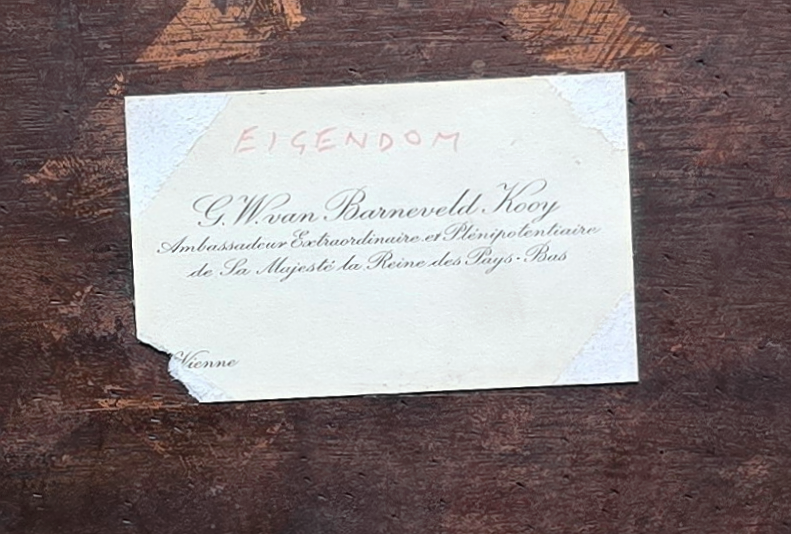 EIGENDOM
G. W. van Barneveld Kooy
Ambassadeur Extraordinaire et Plénipotentiaire
de Sa Majesté la Reine des Pays-Bas
Vienne